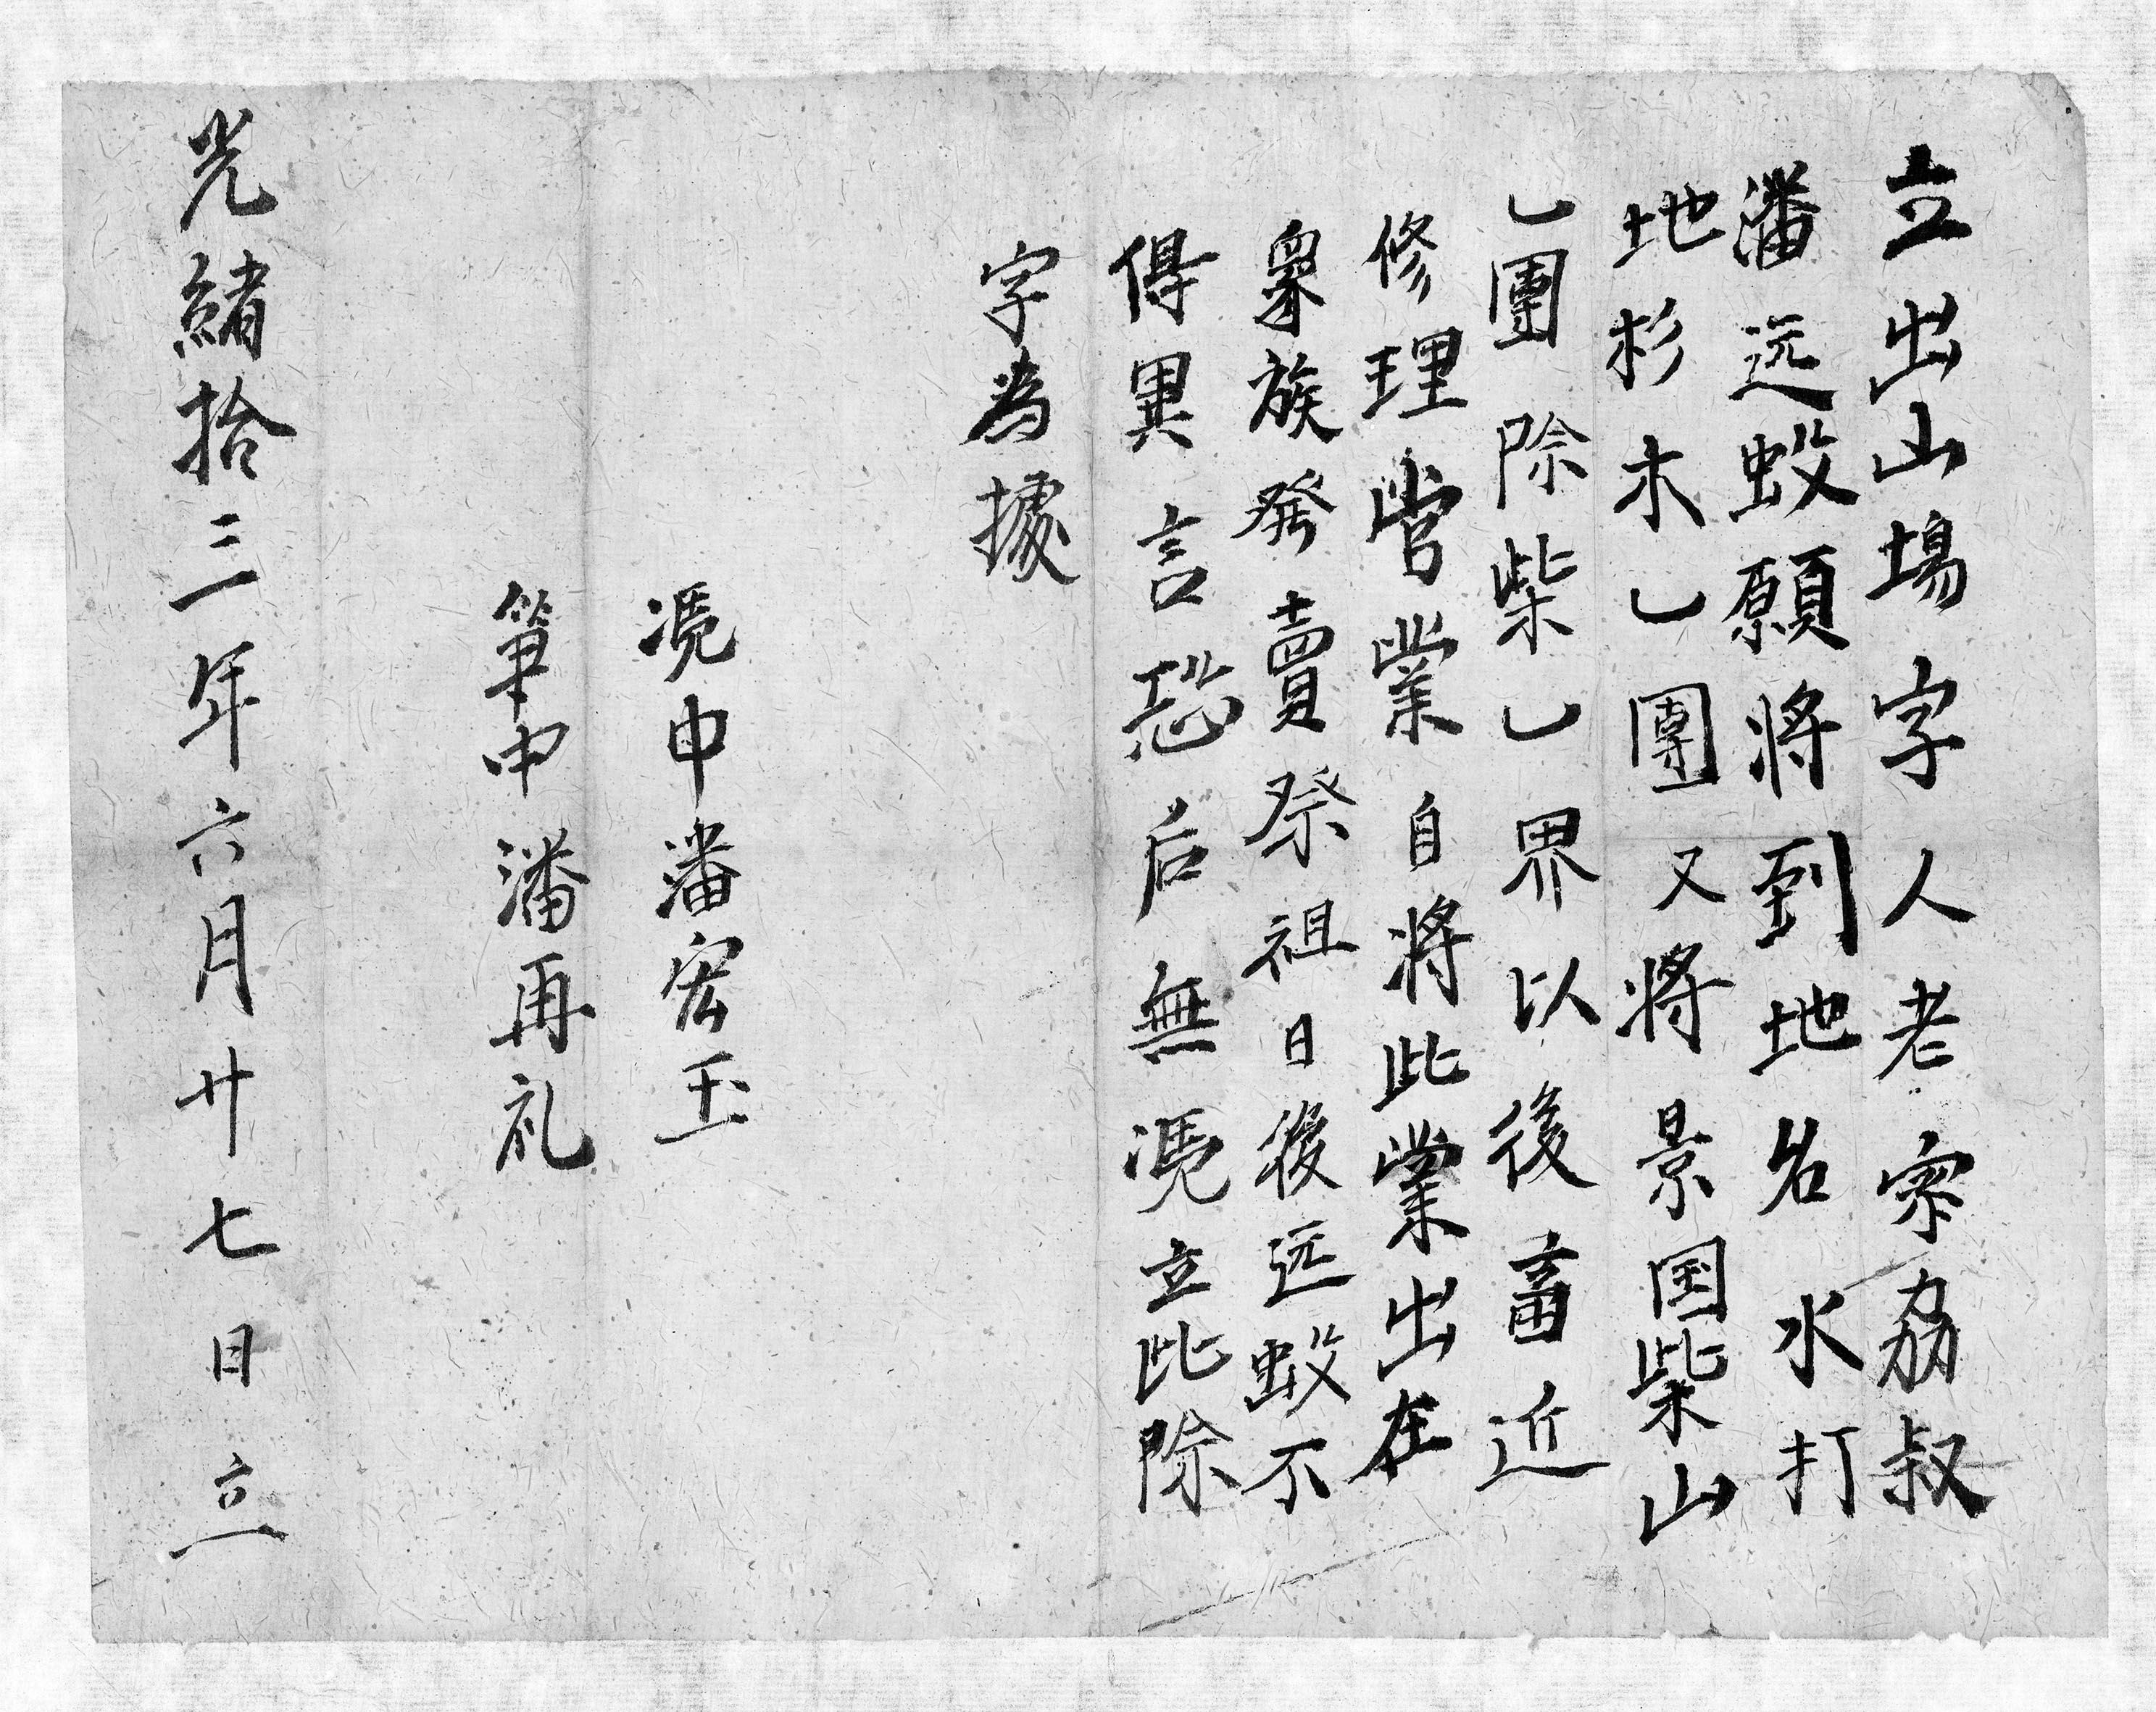 立出山場字人老宗荔叔
潘远蛟願將到地名水打
地杉木乙團又將景国柴山
乙團除柴乙界以後畜近
修理管業自將此業出在
眾族發賣祭祖日後远蛟不
得異言恐后無凴立此除
字為據
凴中潘宏玉
筆中潘再礼
光緒拾三年六月廿七日立